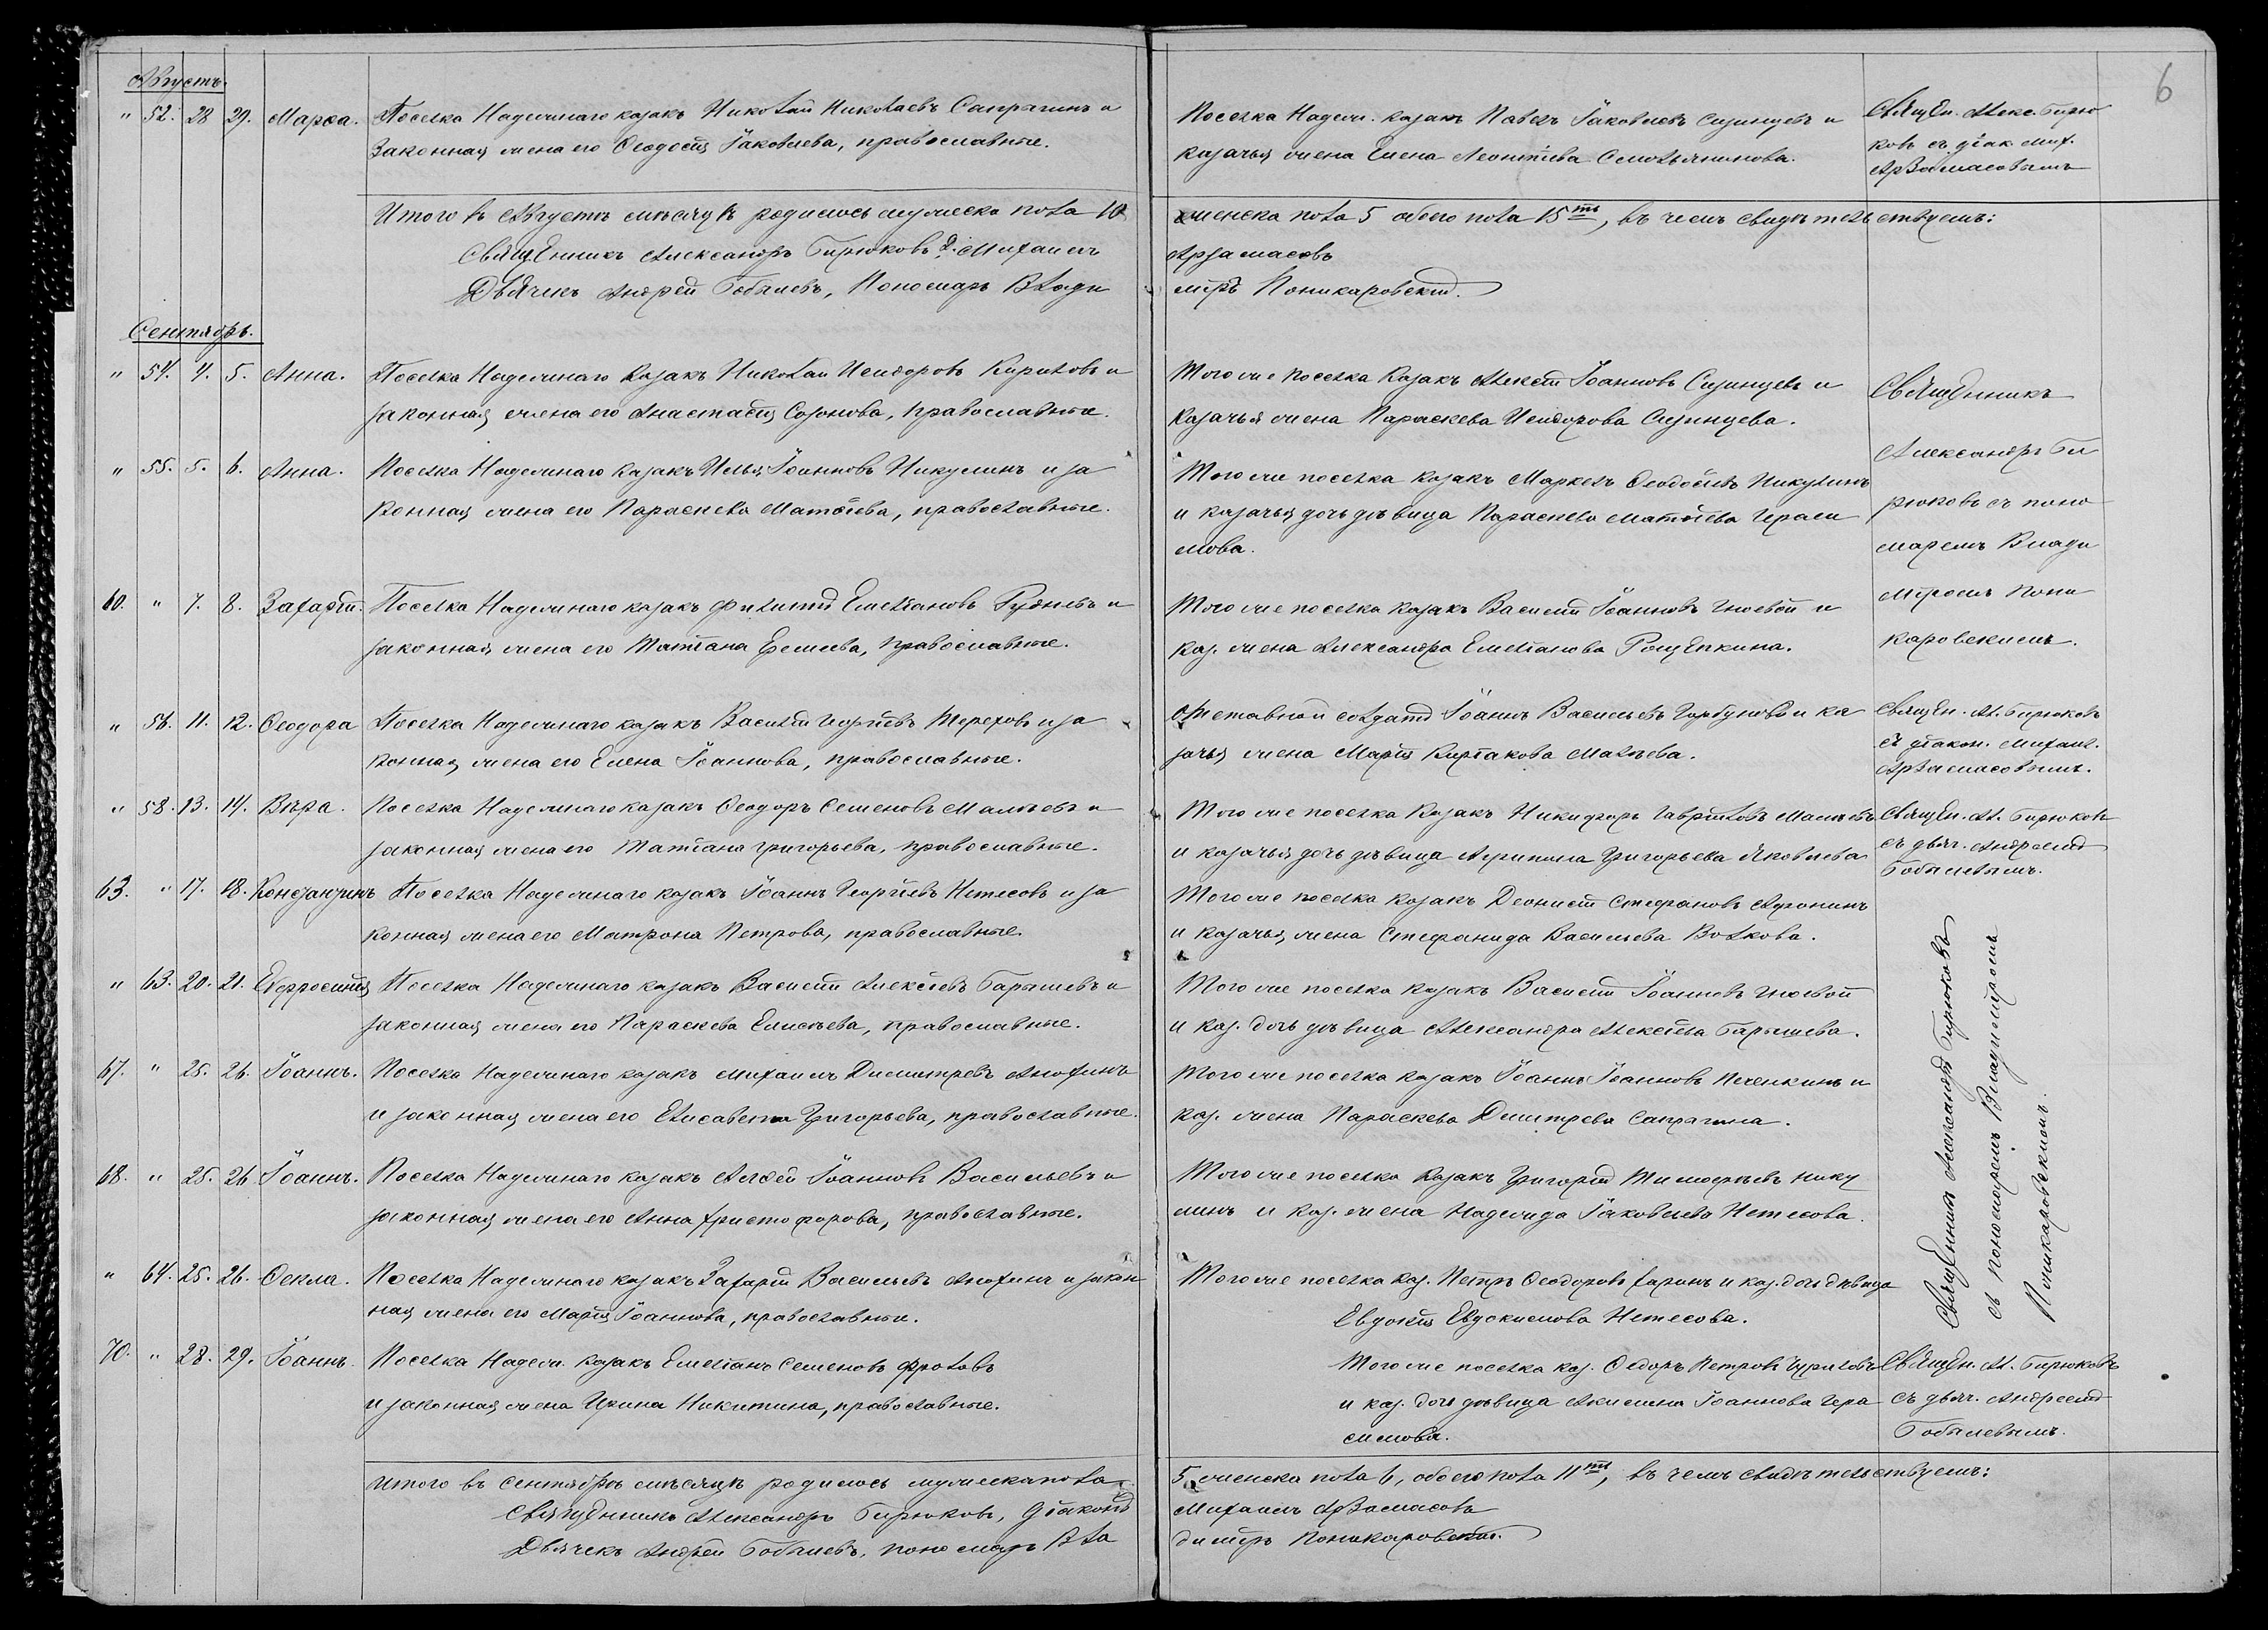 6
Августъ.
" 52. 28 29. Марѳа. Поселка Надежинаго казакъ Николай Николаевъ Сапрагинъ и
законная жена его Ѳеодосія Іаковлева, православные.
Поселка Надежи. казакъ Павелъ Іаковлевъ Сизинцевъ и
казачья жена Елена Леонтіева
Священ. Алекс. Бирю
ковъ съ діак. Мих.
Арзамасовымъ
Итого въ Августѣ мѣсяцѣ родилось мужеска пола 10
женска пола 5 обоего пола 15ть, въ чемъ свидѣтельствуемъ:
Священникъ Александръ Бирюковъ Д. Михаилъ
Арзамасовъ
Дьячекъ Андрей Бобылевъ, Пономарь Влади
міръ Поникаровскій.
Сентябрь.
" 54. 4. 5. Анна. Поселка Надежинаго казакъ Николай Исидоровъ Кириловъ и
законная жена его Анастасія Созонова, православные.
Того же поселка казакъ Алексій Іоанновъ Сизинцевъ и
казачья жена Параскева Исидорова Сизинцева.
" 55. 5. 6. Анна. Поселка Надежинаго казакъ Илья Іоанновъ Никулинъ и за
конная жена его Параскева Матѳіева, православные.
Того же поселка казакъ Маркелъ Ѳеодосіевъ Никулинъ
и казачья дочь дѣвица Параскева Матѳіева Гераси
мова.
60. " 7. 8. Захарій. Поселка Надежинаго казакъ Филиппъ Емеліановъ Рудневъ и
законная жена его Татіана Еремеева, православные.
Того же поселка казакъ Василій Іоанновъ Гноевой и
каз. жена Александра Емеліанова Рощепкина.
Священникъ
Александръ Би
рюковъ съ поно
маремъ Влади
міромъ Пони
каровскимъ.
" 56. 11. 12. Ѳеодора Поселка Надежинаго казакъ Василій Георгіевъ Тереховъ и за
конная жена его Елена Іоаннова, православные.
отставной солдатъ Іоаннъ Васильевъ Горбуновъ и ка
зачья жена Марія Киріакова Малѣева.
Священ. Ал. Бирюковъ
съ діакон. Михаил.
Арзамасовымъ.
" 58. 13. 14. Вѣра. Поселка Надежинаго казакъ Ѳеодоръ Семеновъ Малѣевъ и
законная жена его Татіана Григорьева, православные.
Того же поселка казакъ Никифоръ Гавріиловъ Малѣевъ
и казачья дочь дѣвица Агрипина Григорьева Яковлева
Священ. Ал. Бирюковъ
съ дьяч. Андреемъ
Бобылевымъ.
63. " 17. 18. Константинъ Поселка Надежинаго казакъ Іоаннъ Георгіевъ Нетесовъ и за
конная жена его Матрона Петрова, православные.
Того же поселка казакъ Діонисій Стефановъ Афонинъ
и казачья жена Стефанида Васильева Волкова.
" 63. 20. 21. Евфросинія Поселка Надежинаго казакъ Василій Алексіевъ Барышевъ и
законная жена его Параскева Елисѣева, православные.
Того же поселка казакъ Василій Іоанновъ Гноевой
и каз. дочь дѣвица Александра Алексіева Барышева.
67. " 25. 26. Іоаннъ. Поселка Надежинаго казакъ Михаилъ Димитріевъ Анохинъ
и законная жена его Елисавета Григорьева, православные.
Того же поселка казакъ Іоаннъ Іоанновъ Печенкинъ и
каз. жена Параскева Димитрева Сапрагина.
68. " 25. 26 Іоаннъ. Поселка Надежинаго казакъ Авдей Іоанновъ Васильевъ и
законная жена его Анна Христофорова, православные.
Того же поселка казакъ Григорій Тимофѣевъ Нику
линъ и каз. жена Надежда Іаковлева Нетесова.
" 64. 25. 26. Ѳекла. Поселка Надежинаго казакъ Захарій Васильевъ Анохинъ и закон
ная жена его Марія Іоаннова, православные.
Того же поселка каз. Петръ Ѳеодоровъ Харинъ и каз. дочь дѣвица
Евдокія Евдокимова Нетесова.
Священникъ Александръ Бирюковъ
съ пономаремъ Владиміромъ
Поникаровскимъ.
70. " 28. 29. Іоаннъ. Поселка Надежи. казакъ Емеліанъ Семеновъ Фроловъ
и законная жена Ирина Никитина, православные.
Того же поселка каз. Ѳедоръ Петровъ Чуриловъ
и каз. дочь дѣвица Акилина Іоаннова Гера
симова.
Священ. Ал. Бирюковъ
съ дьяч. Андреемъ
Бобылевымъ.
Итого въ Сентябрѣ мѣсяцѣ родилось мужеска пола
5 женска пола 6, обоего пола 11ть, въ чемъ свидѣтельствуемъ:
Священникъ Александръ Бирюковъ, Діаконъ
Михаилъ Арзамасовъ
Дьячекъ Андрей Бобылевъ, пономарь Вла
диміръ Поникаровскій.